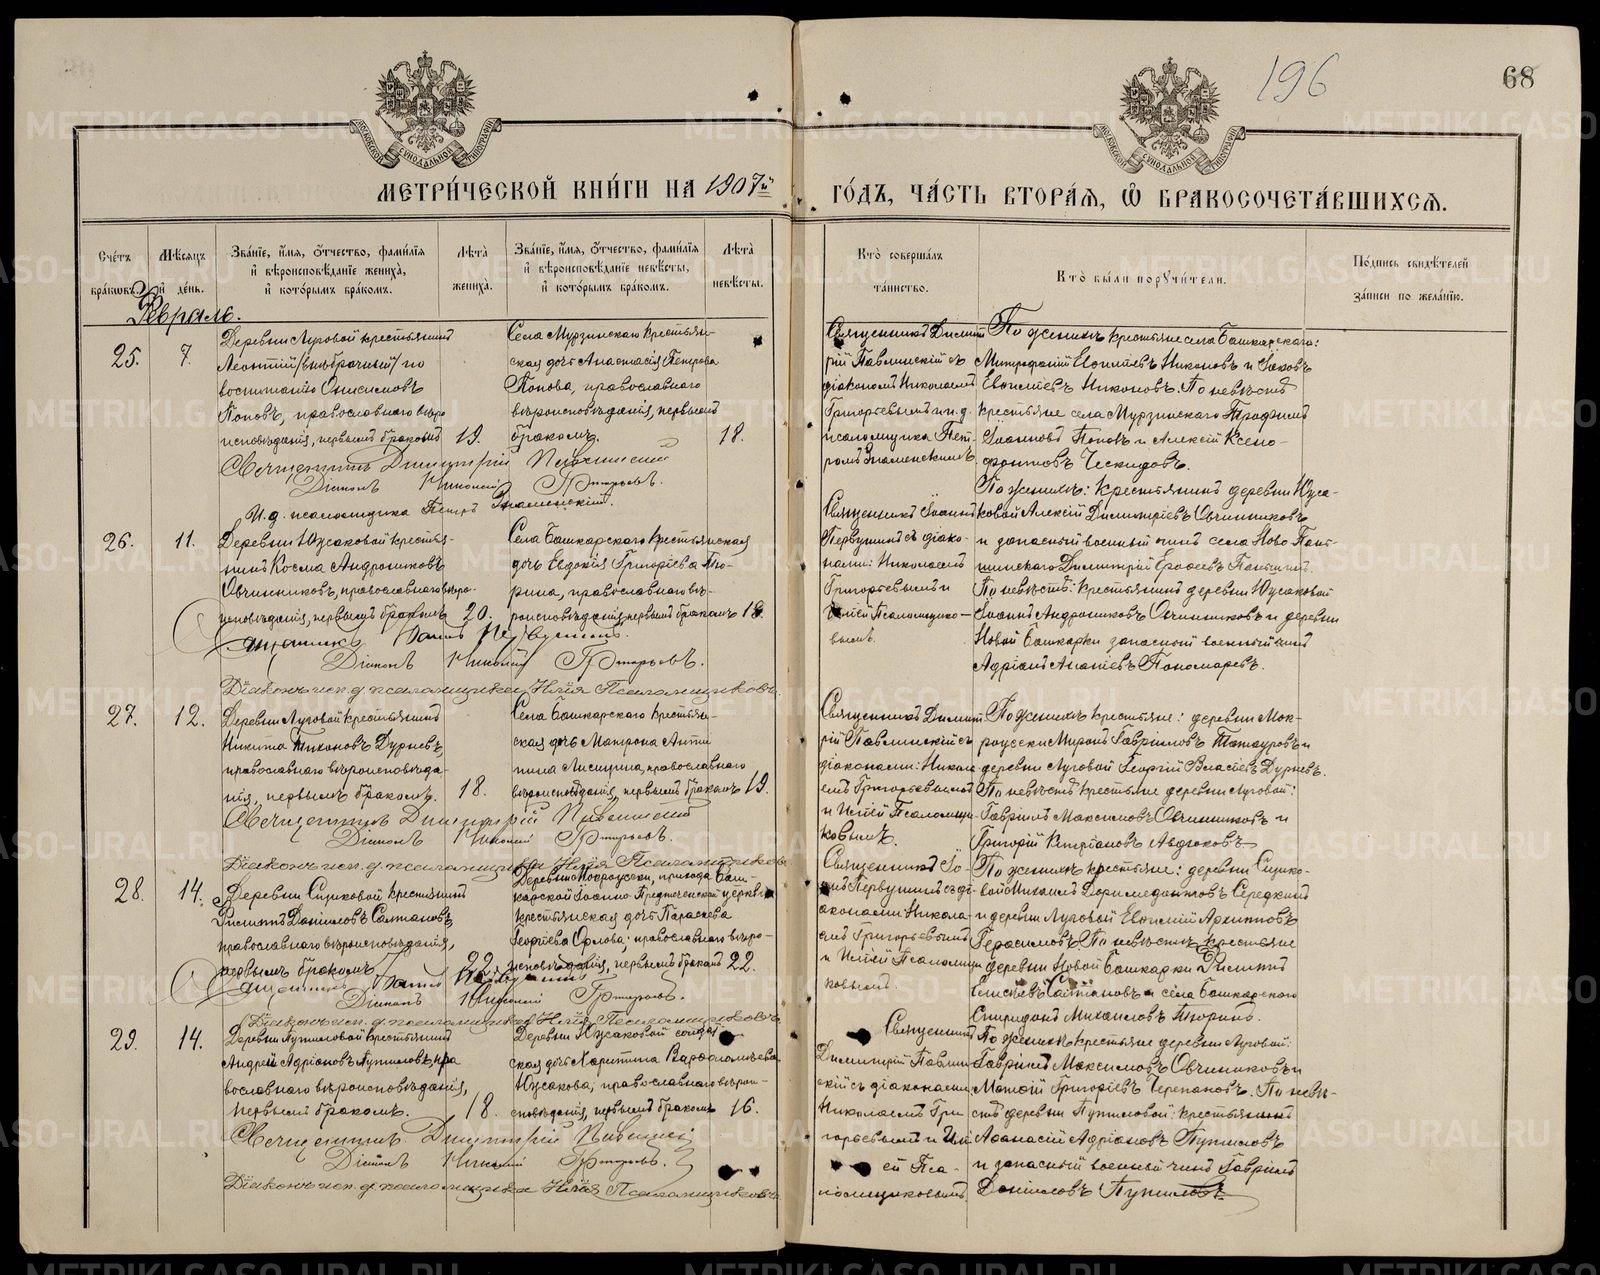 196
68
МОСКОВСКОЙ СѴНОДАЛЬНОЙ ТИПОГРАФІИ
МОСКОВСКОЙ СѴНОДАЛЬНОЙ ТИПОГРАФІИ
МЕТРИ́ЧЕСКОЙ КНИ́ГИ НА 1907й
ГО́ДЪ, ЧА́СТЬ ВТОРА́Ѧ, Ѡ҆ БРАКОСОЧЕТА́ВШИХСѦ.
Счётъ бра́кѡвъ.
Мѣ́сѧцъ и҆ де́нь.
Зва́нїе, и҆́мѧ, ѻ҆́тчество, фами́лїѧ
и҆ вѣроисповѣ́данїе жениха̀,
и҆ кото́рымъ бра́комъ.
Лѣ́та жениха̀.
Зва́нїе, и҆́мѧ, ѻ҆́тчество, фами́лїѧ
и҆ вѣроисповѣ́данїе невѣ́сты,
и҆ кото́рымъ бра́комъ.
Лѣ́та невѣ́сты.
Кто̀ соверша́лъ та́инство.
Кто̀ бы́ли поручи́тели.
По́дпись свидѣ́телей за́писи по жела́нїю.
Февраль.
25.
7.
Деревни Луговой крестьянинъ
Леонтій /внѣбрачный/ по
воспитанію Онисимовъ
Поповъ, православнаго вѣро
исповѣданія, первымъ бракомъ
19.
Села Мурзинскаго крестьян-
ская дочь Анастасія Петрова
Попова, православнаго
вѣроисповѣданія, первымъ
бракомъ.
18.
Священникъ Димит
рій Павлинскій съ
діакономъ Николаемъ
Григорьевымъ и и.д.
псаломщика Пет-
ромъ Знаменскимъ.
По женихѣ крестьяне села Башкарскаго:
Митрофаній Никоновъ и Іаковъ
Никоновъ. По невѣстѣ
крестьяне села Мурзинскаго Трофимъ
Іоанновъ Поповъ и Алексій Ксено-
фонтовъ Ческидовъ.
Священникъ Димитрій Павлинскій
Діаконъ Николай Григорьевъ.
И.д. псаломщика Петръ Знаменскій.
26.
11.
Деревни Южаковой крестья-
нинъ Косма Андрониковъ
Овчинниковъ, православнаго вѣро-
исповѣданія, первымъ бракомъ
20.
Села Башкарскаго крестьянская
дочь Евдокія Григоріева Тю-
рина, православнаго вѣ-
роисповѣданія, первымъ бракомъ
18.
Священникъ Іоаннъ
Первушинъ съ діако-
нами: Николаемъ
Григорьевымъ и
Иліей Псаломщико-
вымъ.
По женихѣ: крестьянинъ деревни Южа-
ковой Алексій Димитріевъ Овчинниковъ
и запасный военный чинъ села Ново Пань-
шинскаго Димитрій Ерофеевъ Паньшинъ.
По невѣстѣ: крестьянинъ деревни Южаковой
Іоаннъ Андрониковъ Овчинниковъ и деревни
Новой Башкарки запасный военный чинъ
Адріанъ Ананіевъ Пономаревъ.
Священникъ Іоаннъ Первушинъ.
Діаконъ Николай Григорьевъ.
Діаконъ исп. д. псаломщика Илія Псаломщиковъ.
27.
12.
Деревни Луговой крестьянинъ
Никита Тихоновъ Дурневъ,
православнаго вѣроисповѣда-
нія, первымъ бракомъ.
18.
Села Башкарскаго крестьян-
ская дочь Матрона Анти
пина Лисицина, православнаго
вѣроисповѣданія, первымъ бракомъ
19.
Священникъ Димит
рій Павлинскій съ
діаконами: Никола
емъ Григорьевымъ
и Иліей Псаломщи-
ковымъ.
По женихѣ крестьяне: деревни Мок-
роусски Миронъ Гавріиловъ Татауровъ и
деревни Луговой Георгій Власіевъ Дурневъ.
По невѣстѣ крестьяне деревни Луговой:
Гавріилъ Максимовъ Овчинниковъ и
Григорій Авдюковъ
Священникъ Димитрій Павлинскій
Діаконъ Николай Григорьевъ.
Діаконъ исп. д. псаломщика Илія Псаломщиковъ
28.
14.
Деревни Сизиковой крестьянинъ
Филиппъ Даніиловъ Салтановъ,
православнаго вѣроисповѣданія,
первымъ бракомъ
22.
Деревни Мокроусски, прихода Баш-
карской Іоанно Предтеченской церкви
крестьянская дочь Параскева
Георгіева Орлова; православнаго вѣро-
исповѣданія, первымъ бракомъ
22.
Священникъ Іо-
аннъ Первушинъ съ ді-
аконами Никола-
емъ Григорьевымъ
и Иліей Псаломщи
ковымъ.
По женихѣ крестьяне: деревни Сизико-
вой Михаилъ Дормедонтовъ Середкинъ
и деревни Луговой Евфимій Архиповъ
Герасимовъ. По невѣстѣ крестьяне
деревни Новой Башкарки Филиппъ
и села Башкарскаго
Спиридонъ Михаиловъ Тюринъ.
Священникъ Іоаннъ Первушинъ
Діаконъ Николай Григорьевъ.
Діаконъ исп. д. псаломщика Илія Псаломщиковъ
29.
14.
Деревни Пупиловой крестьянинъ
Андрей Адріановъ Пупиловъ, пра
вославнаго вѣроисповѣданія,
первымъ бракомъ.
18.
Деревни Южаковой солдат
ская дочь Харитина Варфоломѣева
Южакова; православнаго вѣрои-
сповѣданія, первымъ бракомъ
16.
Священникъ
Димитрій Павлин
скій съ діаконами
Николаемъ Гри
горьевымъ и Илі
ей Пса-
ломщиковымъ
По женихѣ крестьяне деревни Луговой:
Гавріилъ Максимовъ Овчинниковъ и
Матфій Григоріевъ Черепановъ. По невѣ-
стѣ деревни Пупиловой: крестьянинъ
Аѳанасій Адріановъ Пупиловъ
и запасный военный чинъ Гавріилъ
Даніиловъ Пупиловъ
Священникъ Димитрій Павлинскій
Діаконъ Николай Григорьевъ.
Діаконъ исп. д. псаломщика Илія Псаломщиковъ
METRIKI.GASO-URAL.RU